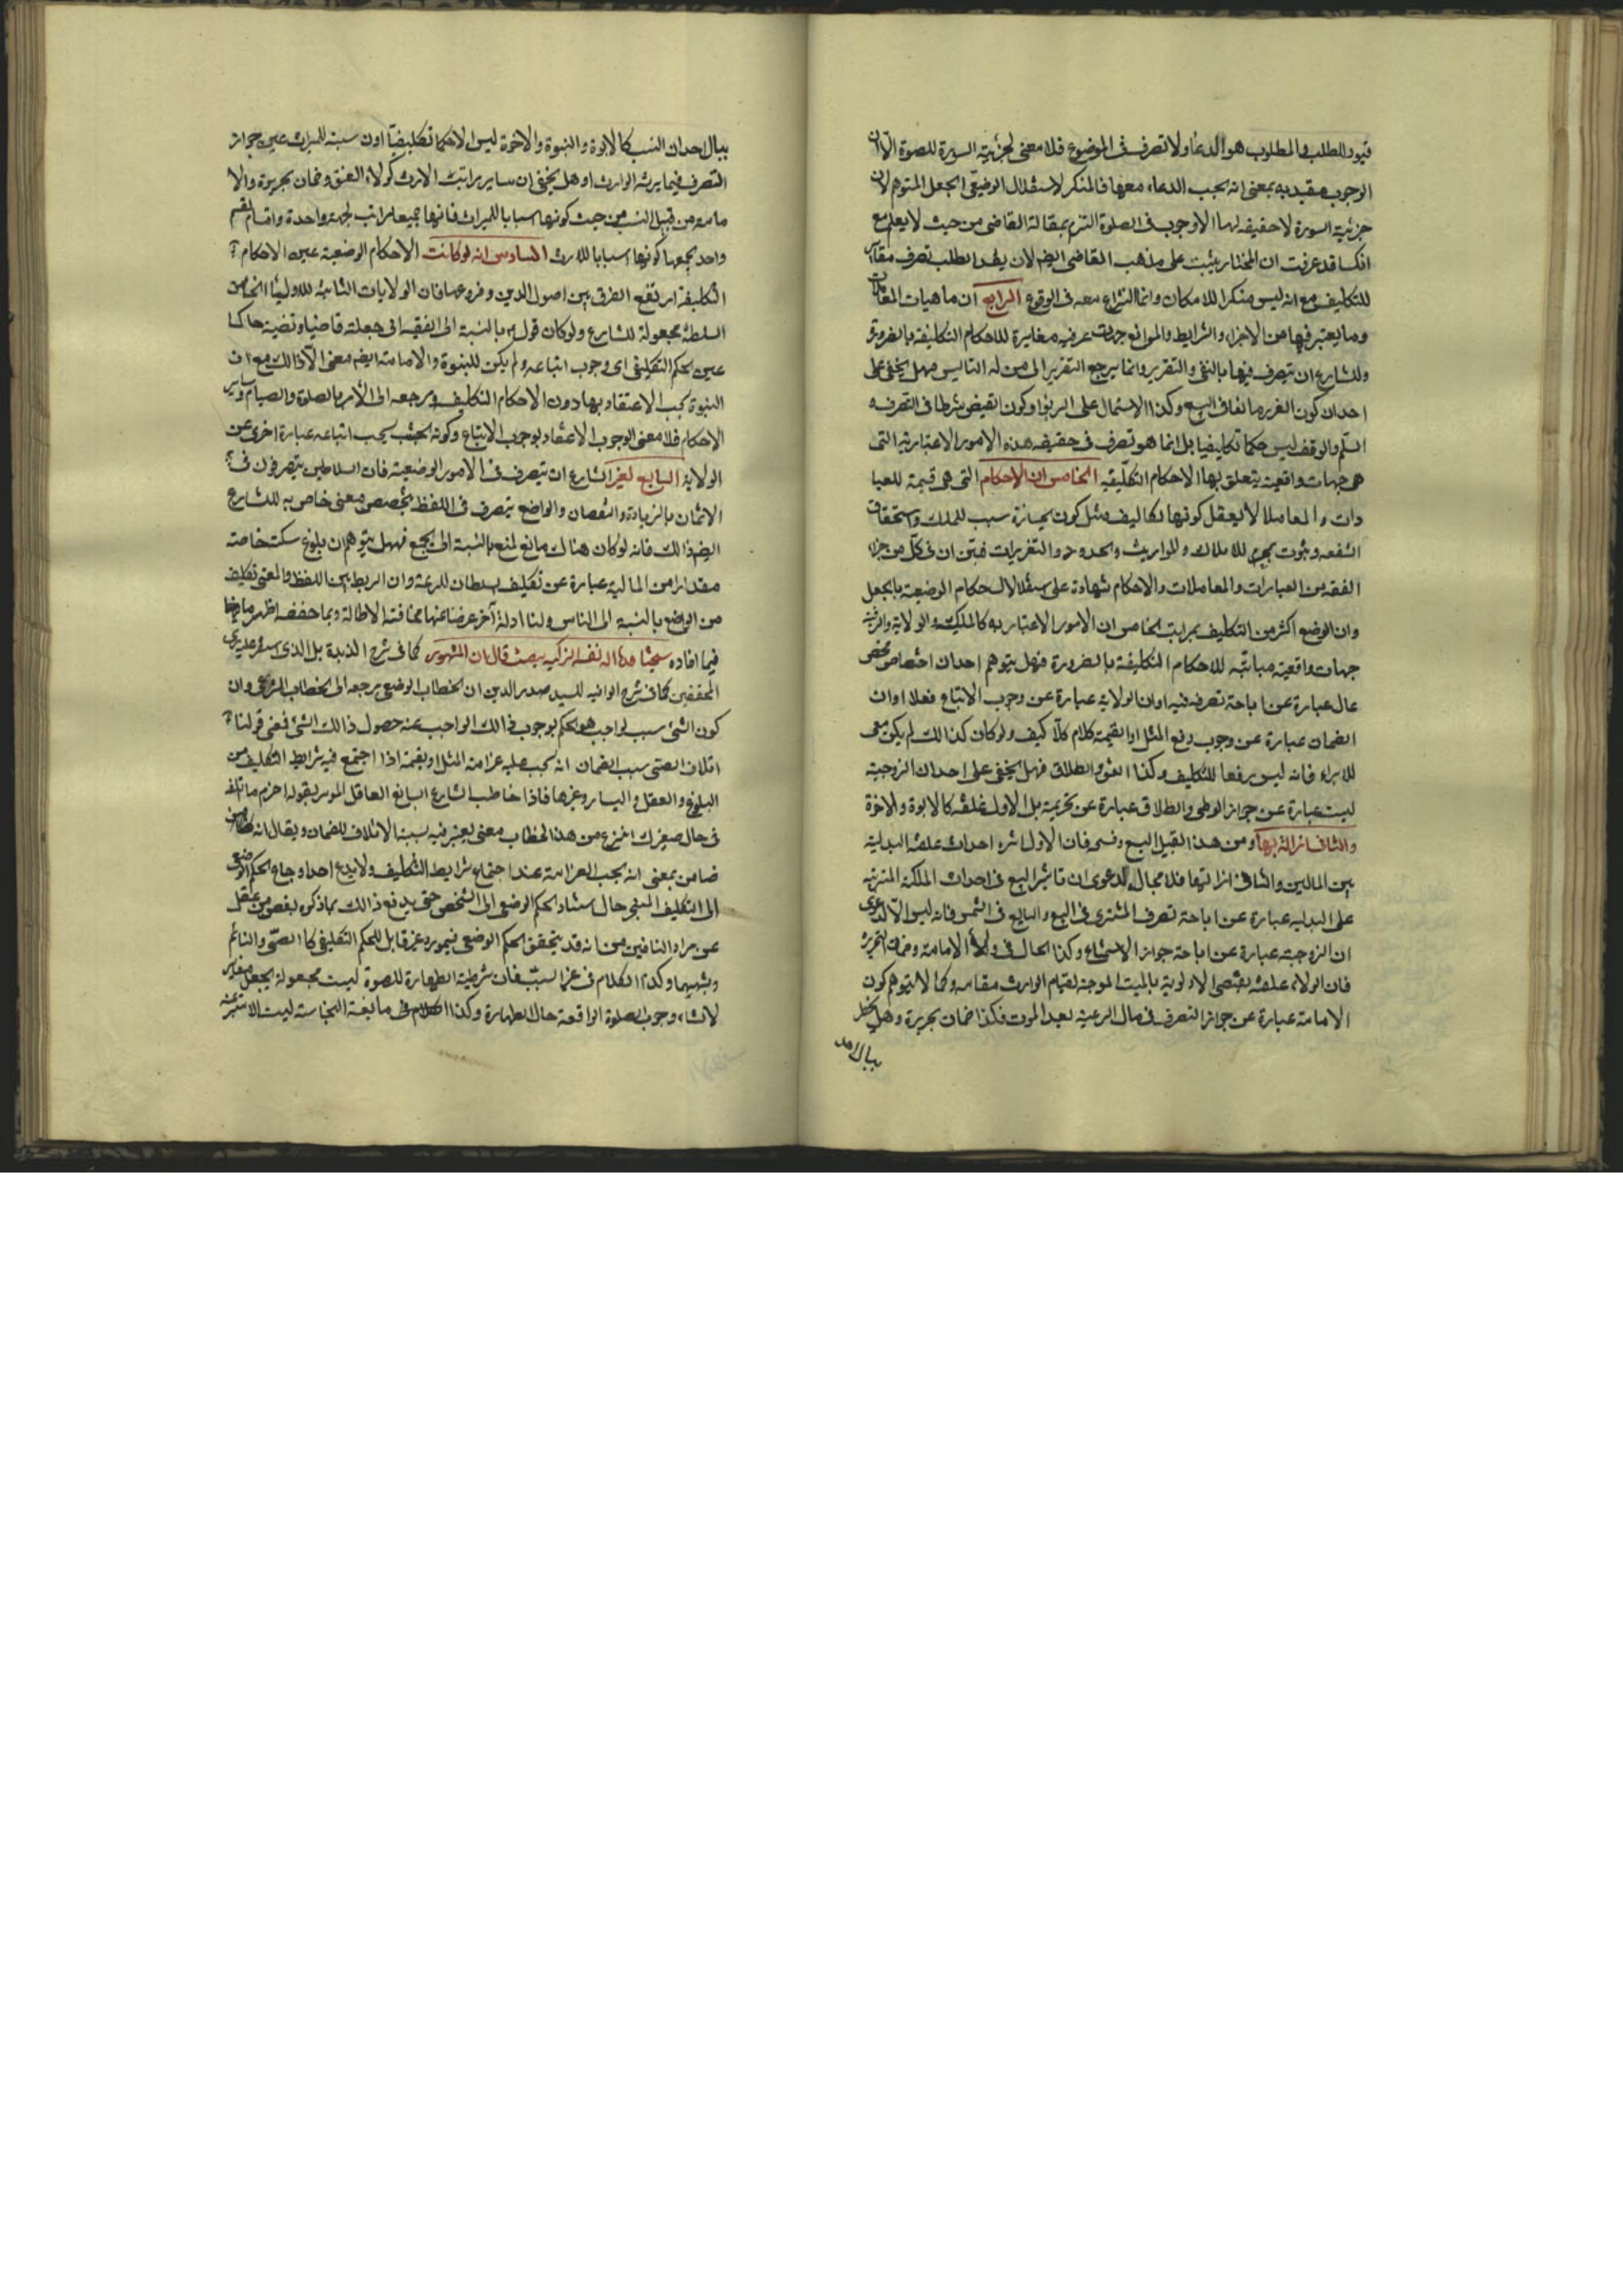 قيود للطلب والمطلوب هو الدعاء ولا تصرف فى الموضوع فلا معنى لجزئية السورة للصلوة الا ان
الوجوب مقيد به بمعنى انه يجب الدعاء معها فالمنكر لاستقلال الوضع فى الجعل المتوهم لان
جزئية السورة لا حقيقة لها الا وجوب فى الصلوة التزم بمقالة القاضى من حيث لا يعلم مع
انك قد عرفت ان المختار يثبت على مذهب القاضى ايضم لان يقيد الطلب تصرف مقابل
للتكليف مع انه ليس منكرا للامكان وانما النزاع معه فى الوقوع الرابع ان ماهيات المقامات
وما يعتبر فيها من الاجزاء والشرايط والموانع جهات عرفيه مغايرة للاحكام التكليفة بالضرورة
وللشارع ان يتصرف فيها بالنفى والتقرير وانما يرجع التقرير الى من له التاسيس فهل يخفى على
احد ان كون الغرر مانعا فى البيع وكذا الاشتمال على الربوا وكون القبض شرطا فى الصرف و
السلم والوقف ليس حكما تكليفيا بل انما هو تصرف فى حقيقة هذه الامور الاعتبارية التى
هى جهات واقعية يتعلق بها الاحكام التكليفيه الخامس ان الاحكام التى هى قسيمة للعبا
دات والمعاملا لا يعقل كونها تكاليف مثل كون الحيازة سبب للملك واستحقاق
الشفعه وثبوت للاملاك والمواريث والحدود والتعزيرات فتبين ان فى كل من جزاء
الفقه من العبارات والمعاملات والاحكام شهادة على استقلال الاحكام الوضعية بالجعل
وان الوضع اكثر من التكليف بمراتب الخامس ان الامور الاعتباريه كالملكيت والولاية والرقية
جهات واقعية مباينة للاحكام التكليفة بالضرورة فهل يتوهم احد ان اختصاص شخص
بمال عبارة عن اباحة تصرفه فيه او ان الولاية عبارة عن وجوب الاتباع فعلا او ان
الضمان عبارة عن وجوب دفع المثل او القيمة كلام كلا كيف ولو كان كذالك لم يكن معنى
للابراء فانه ليس رفعا للتكليف وكذا العتق والطلاق فهل يخفى على احد ان الزوجية
ليست عبارة عن جواز الوطى والطلاق عبارة عن تحريمة بل الاول علقة كالابوة والاخوة
والثانى ازالة بها ومن هذا القبيل البيع وفسخه فان الاول اثره احداث علقة البدلية
بين المالين والثانى ازالتها فلا مجال لدعوى ان تاثير البيع فى احداث الملكية المترتبه
على البدليه عبارة عن اباحة تصرف المشترى فى المبيع والبايع فى الثمن فانه ليس الا لدعوى
ان الزوجية عبارة عن اباحة جواز الاستمتاع وكذا الحال فى ولاء الامامة وضمان الجريرة
فان الولاء علقة يقتضى الاولوية بالميت الموجبة لقيام الوارث مقامه وكما لا يتوهم كون
الامامة عبارة عن جواز التصرف فى مال الرعيه بعد الموت فكذا ضمان جريرة وهل يخطر
ببال احد
ببال احد ان النسب كالابوة والبنوة والاخوة ليس الا حكما تكليفيا او ان سببه للميراث عين جواز
التصرف فيما يرثه الوارث او هل يخفى ان ساير مراتب الارث كولاء العتق وضمان جريرة والا
مامه من قبيل النسب من حيث كونها اسبابا للميراث فانها جميعا مراتب لجهة واحدة واقسام لقسم
واحد يجمعها كونها اسبابا للارث السادس انه لو كانت الاحكام الوضعية عين الاحكام
التكليفة ارتفع الفرق بين اصول الدين وفروعه فان الولايات الثابتة للاولياء الخاص
السلطنة مجعولة للشارع ولو كان قوله بالنسبة الى الفقيه انى جعلته قاضيا ونصبته حاكما
عين الحكم التكليفى اى وجوب اتباعه ولم يكن للنبوة والامامة ايضم معنى الا ذالك مع ان
النبوة يجب الاعتقاد بها دون الاحكام التكليف ومرجعه الى الامر بالصلوة والصيام وساير
الاحكام فلا معنى لوجوب الاعتقاد بوجوب الاتباع وكونه بحيث يجب اتباعه عبارة اخرى عن
الولاية السابع لغير الشارع ان يتصرف فى الامور الوضعية فان السلاطين يتصرفون فى
الاثمان بالزيادة والنقصان والواضع يتصرف فى اللفظ بتخصيص معنى خاص به للشارع
ايضم ذالك فانه لو كان هنالك مانع لمنع بالنسبة الى الجميع فهل يتوهم ان بلوغ سكت خاصة
مقدارا من المالية عبارة عن تكليف سلطان للرعية وان الربط بين اللفظ والمعنى تكليف
من الواضع بالنسبة الى الناس ولنا ادلة آخر عرضنا عنها مخافة الاطالة وبما حققنا ظهر ما
فيما افاده شيخنا هذا الله نفسه الزكيه حيث قال ان المشهور كما فى شرح الزبدة بل الذى استقر عليه رأى
المحققين كما فى شرح الوافيه للسيد صدر الدين ان الخطاب الوضعى مرجعه الى الخطاب الشرعى وان
كون الشئ سبب لواجب هو الحكم بوجوب ذالك الواجب عند حصول ذالك الشئ فمعنى قولنا
اتلاف الصبى سبب الضمان انه يجب عليه غرامة المثل او القيمة اذا اجتمع فيه شرايط التكليف من
البلوغ والعقل واليسار وغيرها فاذا خاطب الشارع البالغ العاقل الموسر بقوله اغرم ما اتلفه
فى حال صغرك انتزع من هذا الخطاب معنى يعبر فيه بسببية الاتلاف للضمان ويقال انه
ضامن بمعنى انه يجب الغرامة عند اجتماع شرايط التكليف ولا يدع احد ارجاع الحكم الوضعى
الى التكليف المنجز حال استناد الحكم الوضعى الى الشخص حتى يدفع ذالك بما ذكره بعض من غفل
عن مراد النافين من انه قد يتحقق الحكم الوضعى فى مورد غير قابل للحكم التكليفى كالصبى والنائم
وشبههما وكذا الكلام فى غير السبب فان شرطية الطهارة للصلوة ليست مجعولة بجعل مغاير
لانشاء وجوب الصلوة الواقعة حال الطهارة وكذا الكلام فى مانعية النجاسة ليست الا منتزعة